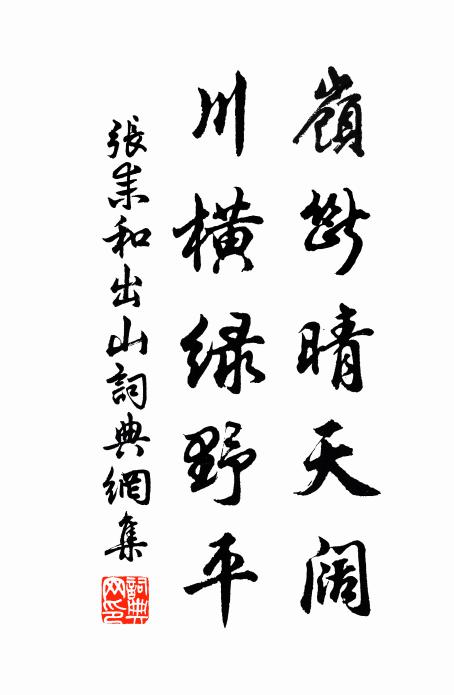 嶺斷晴天阔
川橫緑野平
張耒和出山詞典網集
詞典网印